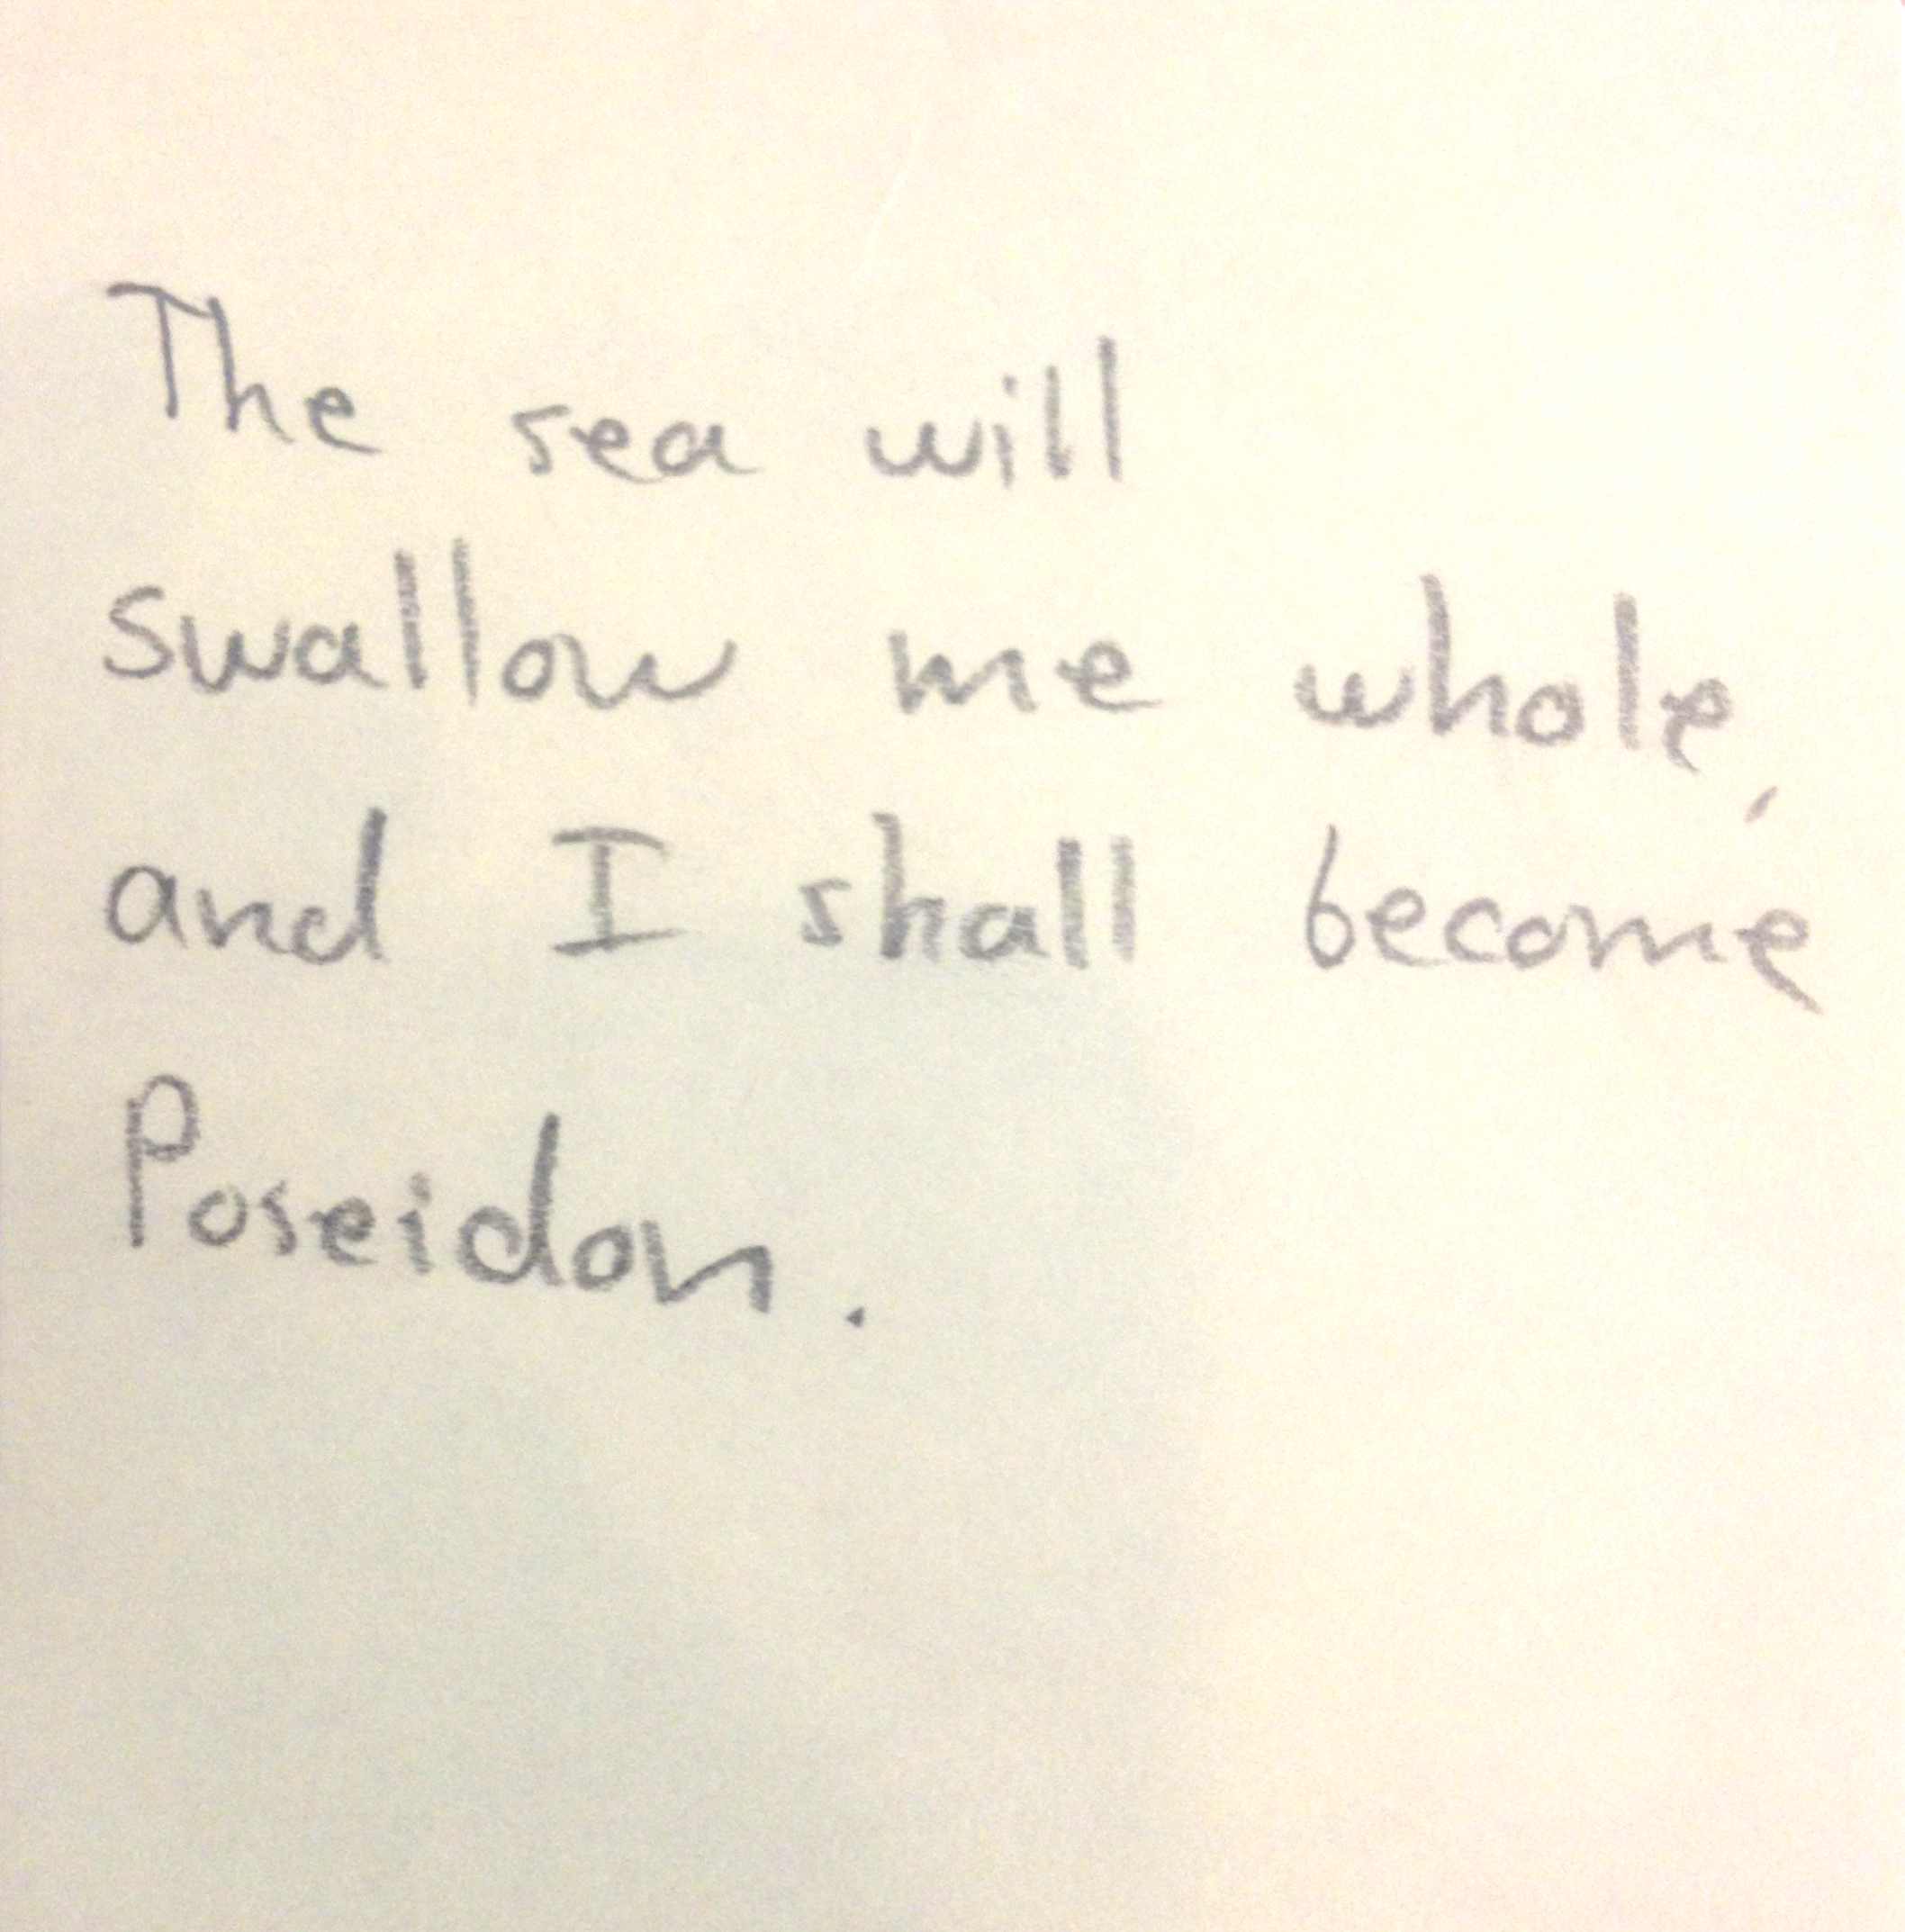 The sea will
swallow me whole,
and I shall become
Poseidon.